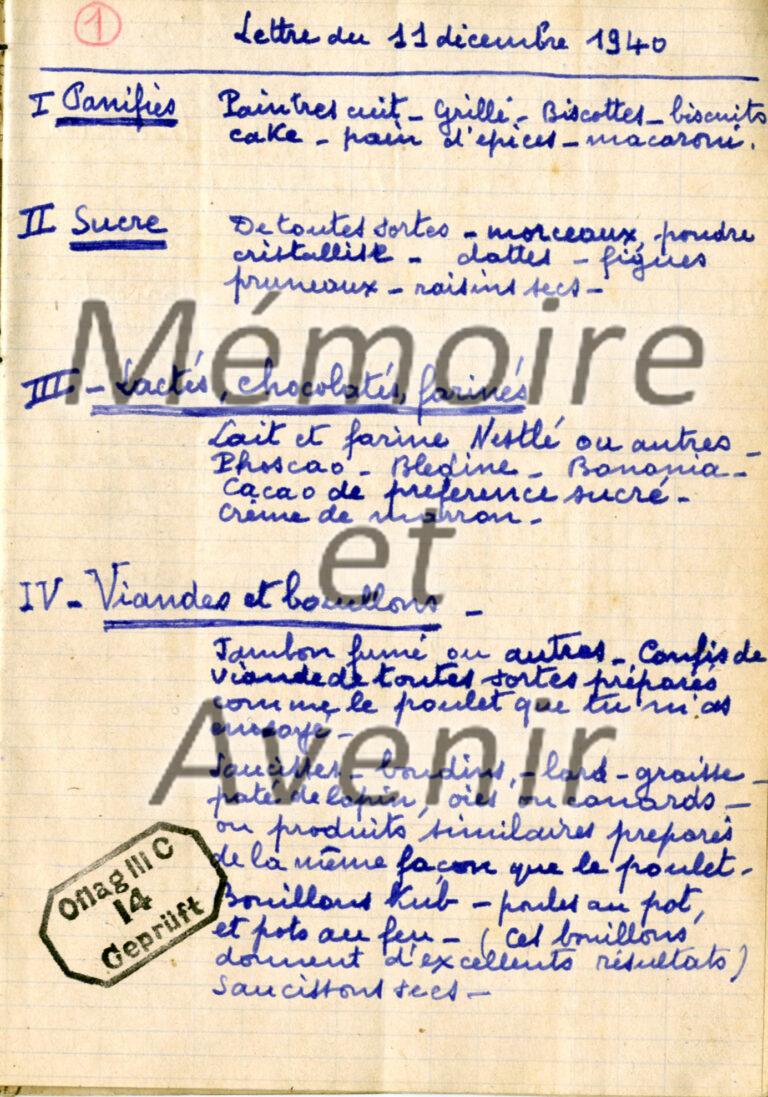 1
Lettre du 11 décembre 1940
I Panifiés Pain très cuit - Grillé - Biscottes - biscuits
cake - pain d'épices - macaroni.
II Sucre De toutes sortes - morceaux, poudre
cristallisé - dattes - figues
pruneaux - raisins secs -
III - Lactés, chocolatés, farinés
Lait et farine Nestlé ou autres -
Phoscao - Bledine - Banania -
Cacao de préférence sucré -
Crème de marron -
IV - Viandes et bouillons -
Jambon fumé ou autres - Confis de
viande de toutes sortes préparés
comme le poulet que tu m'as
envoyé -
Saucisses - boudins, - lard - graisse -
paté de lapin, oies ou canards -
ou produits similaires preparés
de la même façon que le poulet -
Bouillons Kub - poules au pot,
et pots au feu - (Ces bouillons
donnent d'excellents résultats)
Saucissons secs -
Oflag III C
14
Geprüft
Mémoire
et
Avenir